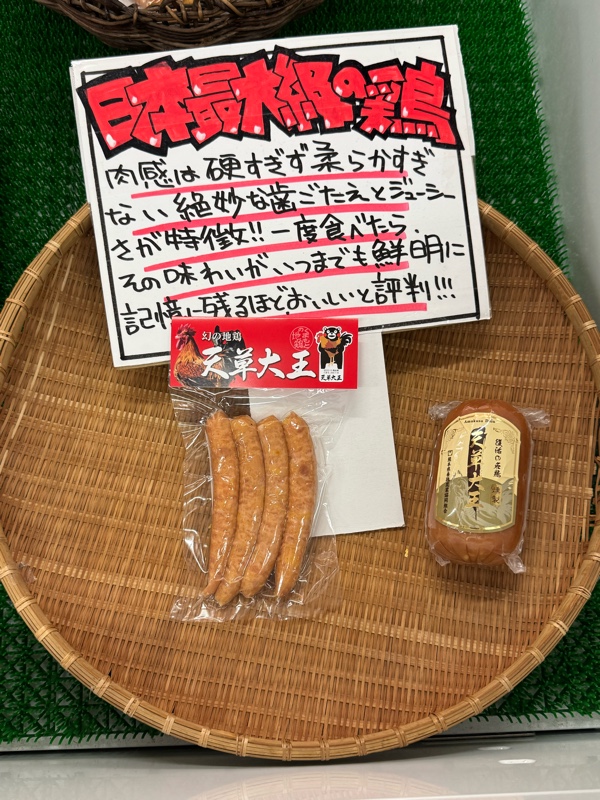 日本最大級の鶏
肉感は硬すぎず柔らかすぎ
ない絶妙な歯ごたえとジューシー
さが特徴!!一度食べたら、
その味わいがいつまでも鮮明に
記憶に残るほどおいしいと評判!!!
幻の地鶏
天草大王
天草大王
Amakusa Daiou
復活の地鶏
天草大王
燻製